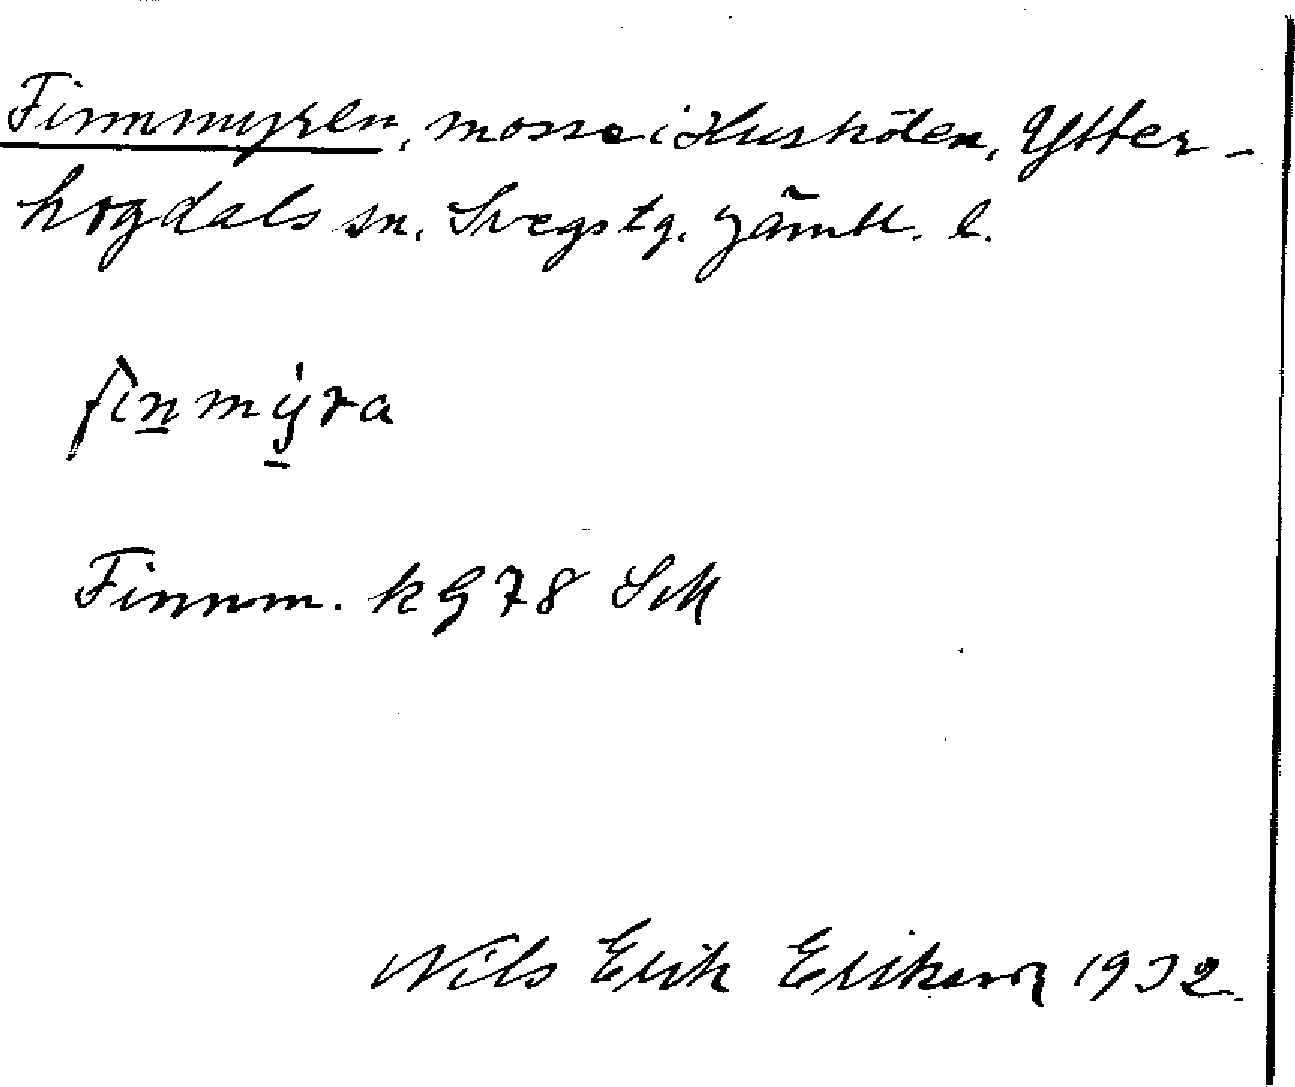 Finnmyren, mosse i Huskölen, Ytter-
hogdals sn. Svegs tg. Jämtl. l.
finmýra
Finnm. k G 78 SvK
Nils Erik Erikson 1932.